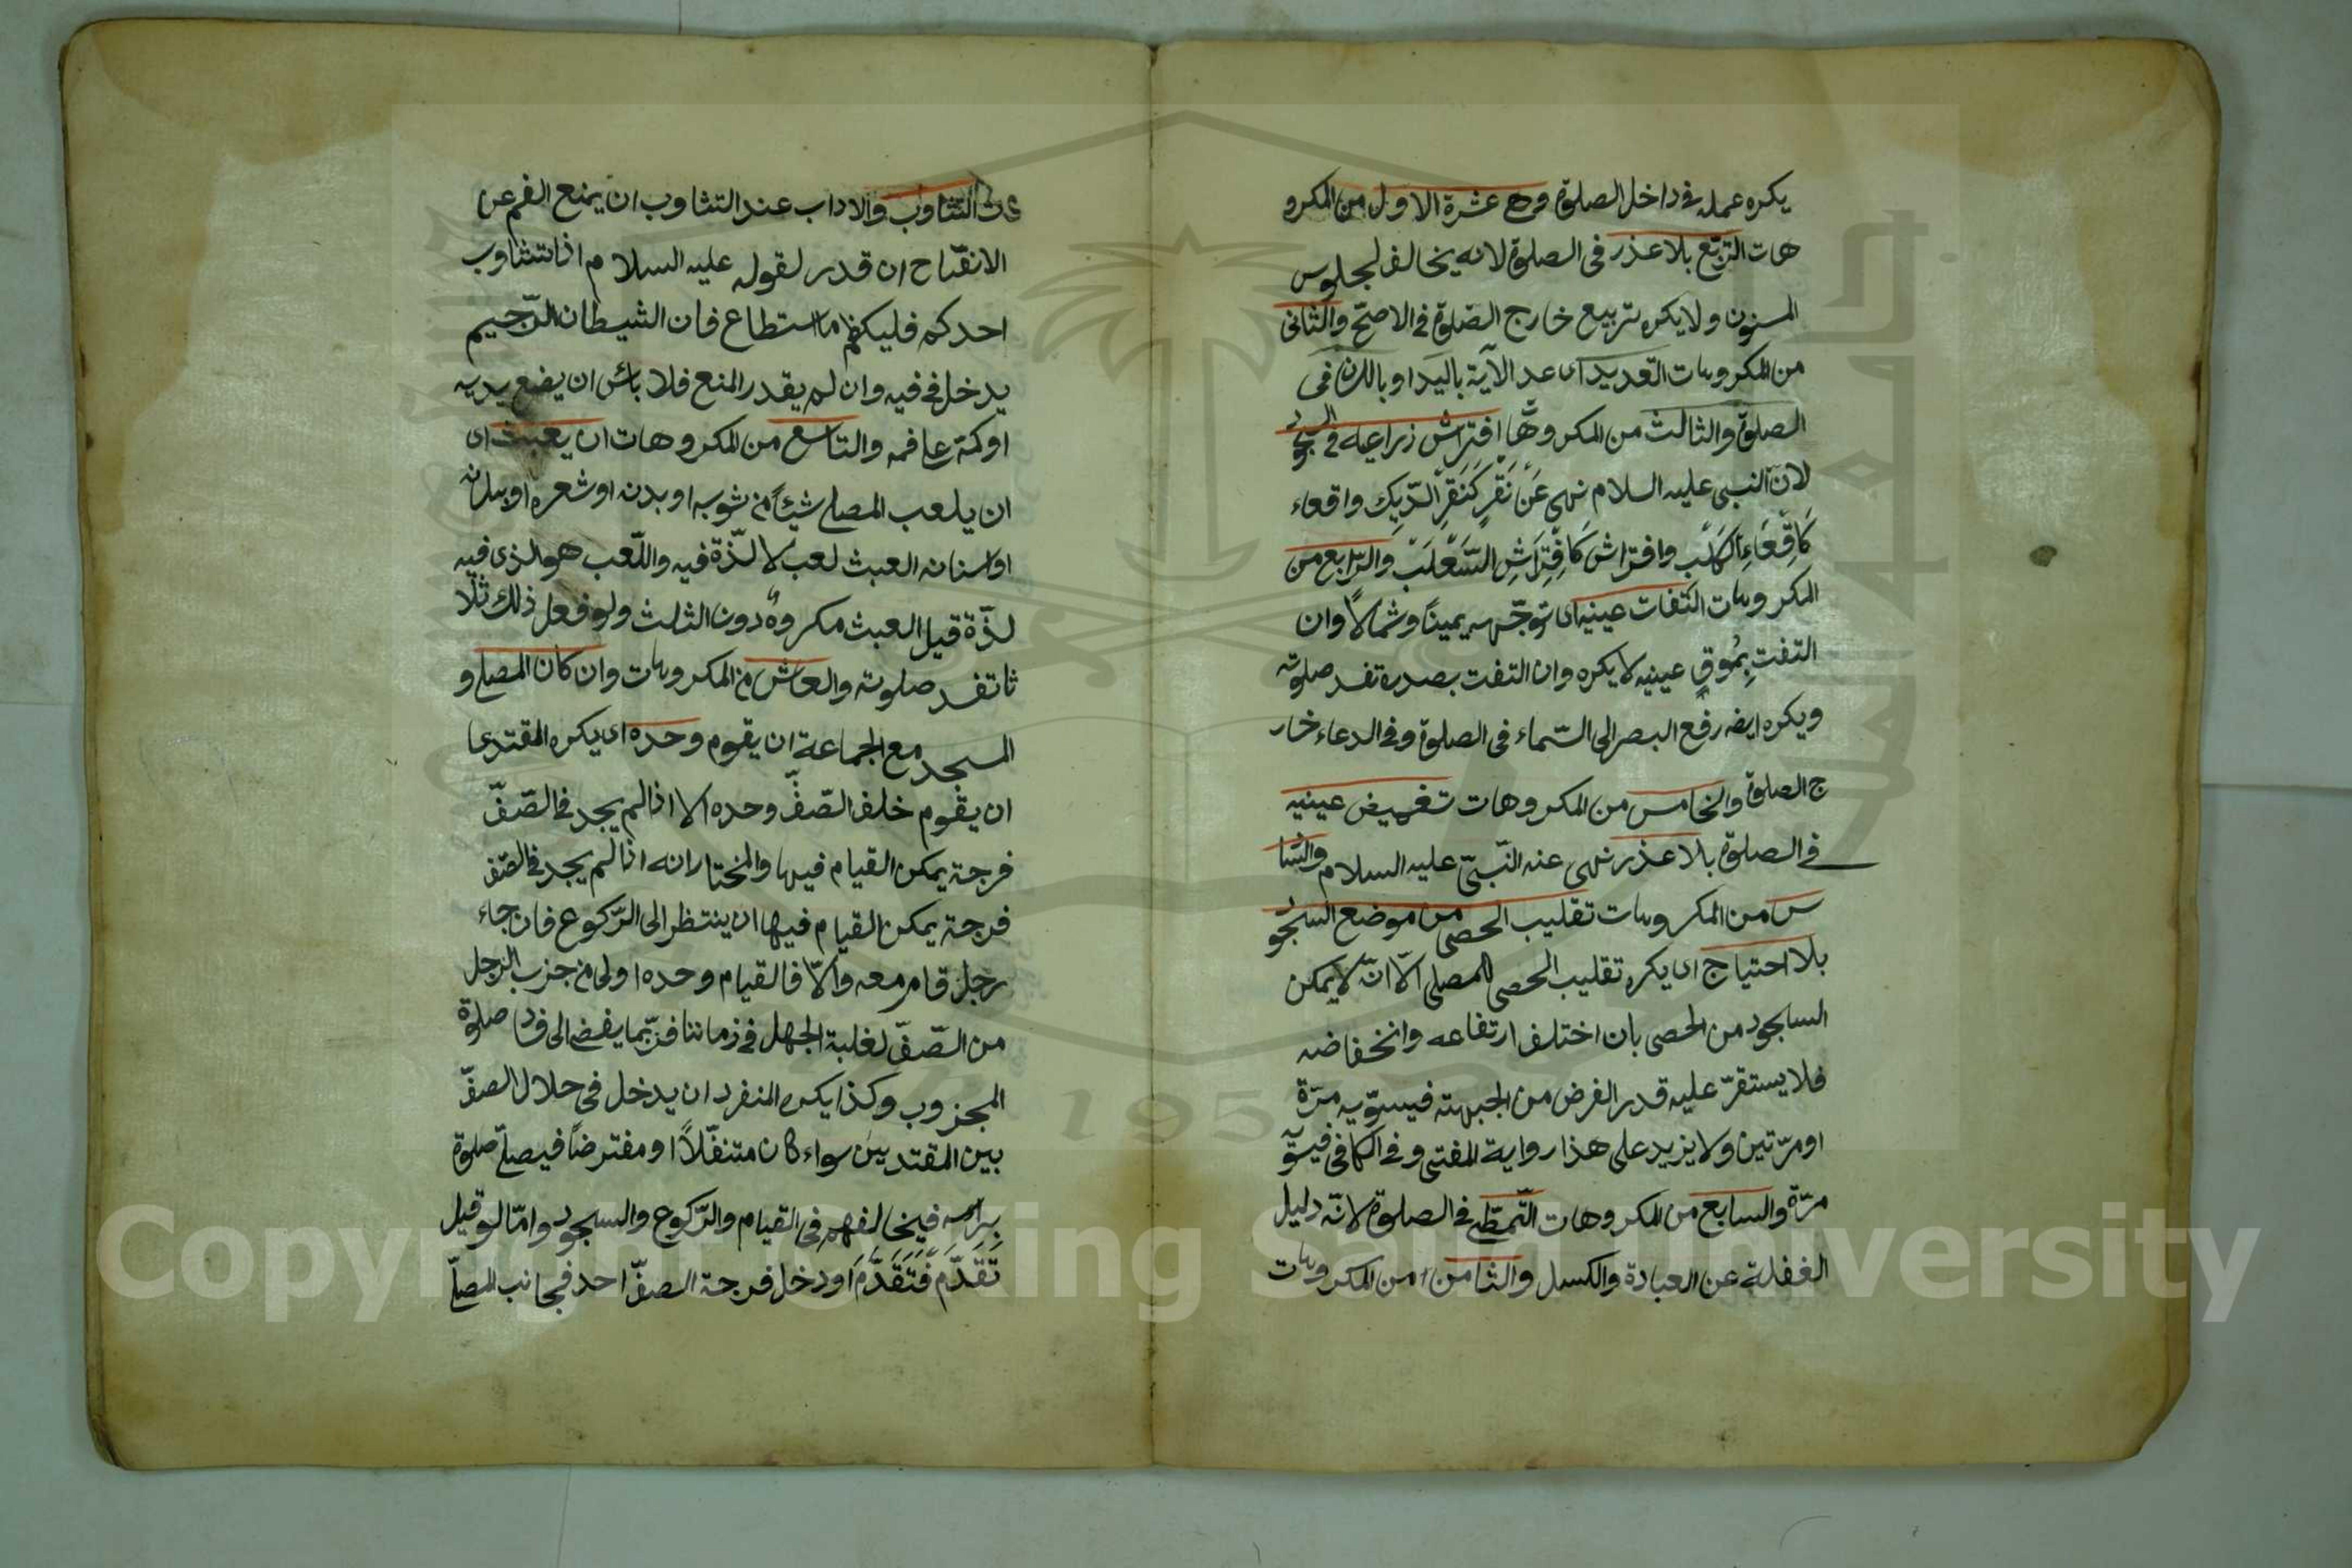 يكره عمله فى داخل الصلوة وهى عشرة الاول من المكرو
هات التربّع بلا عذر فى الصلوة لانه يخالف لجلوس
المسنون ولا يكره تربيع خارج الصّلوة فى الاصحّ والثانى
من المكروهات التعديد اى عد الآية باليد او بالللسان فى
الصلوة والثالث من المكروهّا افتراش زراعيه فى السجود
لانّ النبى عليه السلام نهى عَنْ نَقْرٍ كَنَقْرِ الدّيك واقعاء
كَاقِعَاءِ الْكَلْب وافتراش كَافْتِرَاشِ السَّعْلَبْ والرّابع من
المكروهات التفات عينيه اى توجّهه يميناً وشمالاً وان
التفت بِمُوقِ عينيه لا يكره وان التفت بصدره تفسد صلوته
ويكره ايضه رفع البصر الى السّماء فى الصلوة وفى الدعاء خار
ج الصلوة والخامس من المكروهات تغميض عينيه
فى الصلوة بلا عذر نهى عنه النّبىّ عليه السلام والسّا
س من المكروهات تقليب الحصى من موضع السّجود
بلا احتياج اى يكره تقليب الحصى للمصلى الّا انّه لا يمكن
السجود من الحصى بان اختلف ارتفاعه وانخفاضه
فلا يستقرّ عليه قدر الفرض من الجبهته فيسوّيه مرّة
او مرّتين ولا يزيد على هذا رواية المفتى وفى الكافى فيسوّ
مرّة والسابع من المكروهات التّمطّى فى الصلوة لانّه دليل
الغفلة عن العبادة والكسل والثامن من المكروهات
التثاوب والاداب عند التثاوب ان يمنع الفم عن
الانفتاح ان قدر لقوله عليه السلام اذا تثاوب
احدكم فليكظم ما استطاع فان الشيطان الرّجيم
يدخل فى فيه وان لم يقدر المنع فلا بائس ان يضع يديه
او كمّه على فمه والتاسع من المكروهات ان يعبث اى
ان يلعب المصلى شيئاً من ثوبه او بدنه او شعره او
او اسنانه العبث لعب لا لذّة فيه واللّعب هو الذى فيه
لذّة قيل العبث مكروه دون الثلث ولو فعل ذلك ثلا
ثا تفسد صلوته والعاشر من المكروهات وان كان المصلى و
المسجد مع الجماعة ان يقوم وحده اى يكره المقتدى
ان يقوم خلف الصّفّ وحده الا اذا لم يجد فى الصّفّ
فرجة يمكن القيام فيها والمختار انه اذا لم يجد فى الصّف
فرجة يمكن القيام فيها ان ينتظر الى الرّكوع فان جاء
رجل قام معه والّا فالقيام وحده اولى من جزب الرجل
من الصّفّ لغلبة الجهل فى زماننا فربّما يفضى الى فساد صلوة
المجزوب وكذا يكره المنفرد ان يدخل فى خلال الصفّ
بين المقتديين سواء كان متنفّلاً او مفترضاً فيصلّى صلوة
براسه فيخالفهم فى القيام والرّكوع والسجود وامّا لو قيل
تَقَدَّمْ فَتَقَدَّمَ او دخل فرجة الصفّ احد فجانب المصلّى
Copyright © King Saud University
195